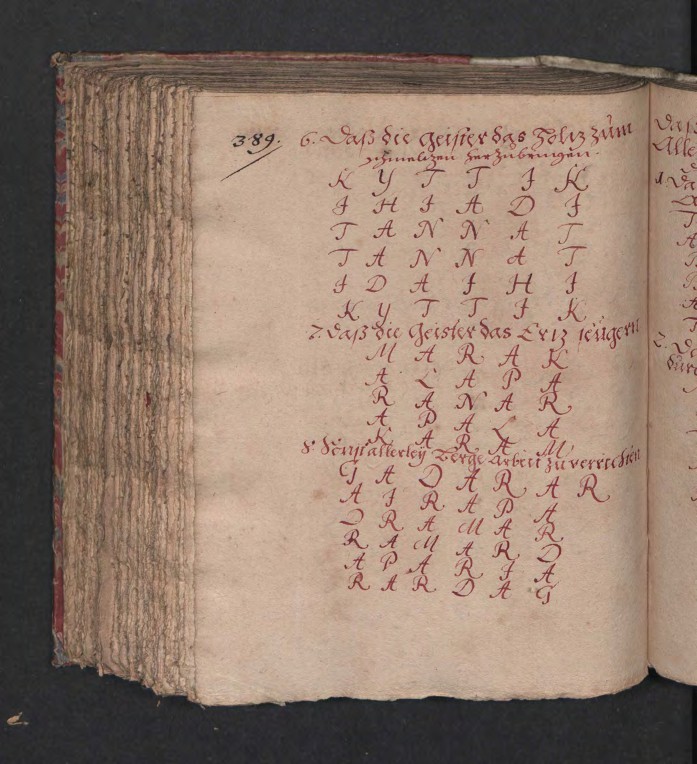 389.
6. Daß die Geister das Holtz zum
schmeltzen herzubringen.
K Y T T I K
I H I A D I
T A N N A T
T A N N A T
I D A I H I
K Y T T I K
7. Daß die Geister das Ertz seugern
M A R A K
A L A P A
R A N A R
A P A L A
K A R A M
8. Sonst allerleÿ Berge Arbeit zu verrichten
G A D A R A R
A I R A P A
D R A M A R
R A M A R D
A P A R I A
R A R D A G
Daß
Alle